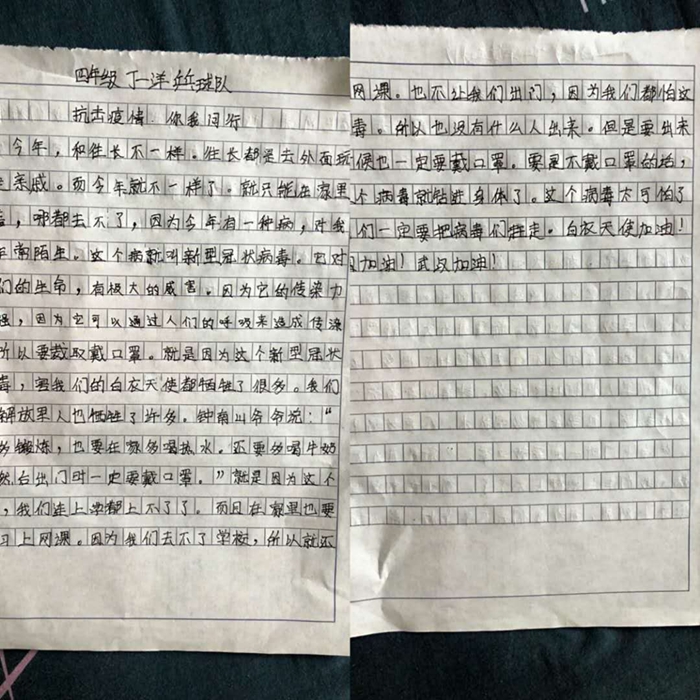 四年级 丁一洋 乒乓球队
抗击疫情 你我同行
今年，和往长不一样。往长都是去外面玩
亲戚。而今年就不一样了。就只能在家里
，哪都去不了，因为今年有一种病，对我
常陌生。这个病就叫新型冠状病毒。它对
们的生命，有极大的威害。因为它的传染力
强，因为它可以通过人们的呼吸来造成传染
所以要戴取戴口罩。就是因为这个新型冠状
毒，害我们的白衣天使都牺牲了很多。我们
解放里人也牺牲了许多。钟南山爷爷说："
多锻炼，也要在家多喝热水。还要多喝牛奶
然后出门时一定要戴口罩。"就是因为这个
，我们连上学都上不了了。而且在家里也要
习上网课。因为我们去不了学校，所以就还
网课。也不让我们出门，因为我们都怕这
毒。所以也没有什么人出来。但是要出来
候也一定要戴口罩。要是不戴口罩的话，
个病毒就钻进身体了。这个病毒太可怕了
们一定要把病毒们赶走。白衣天使加油！
加油！武汉加油！